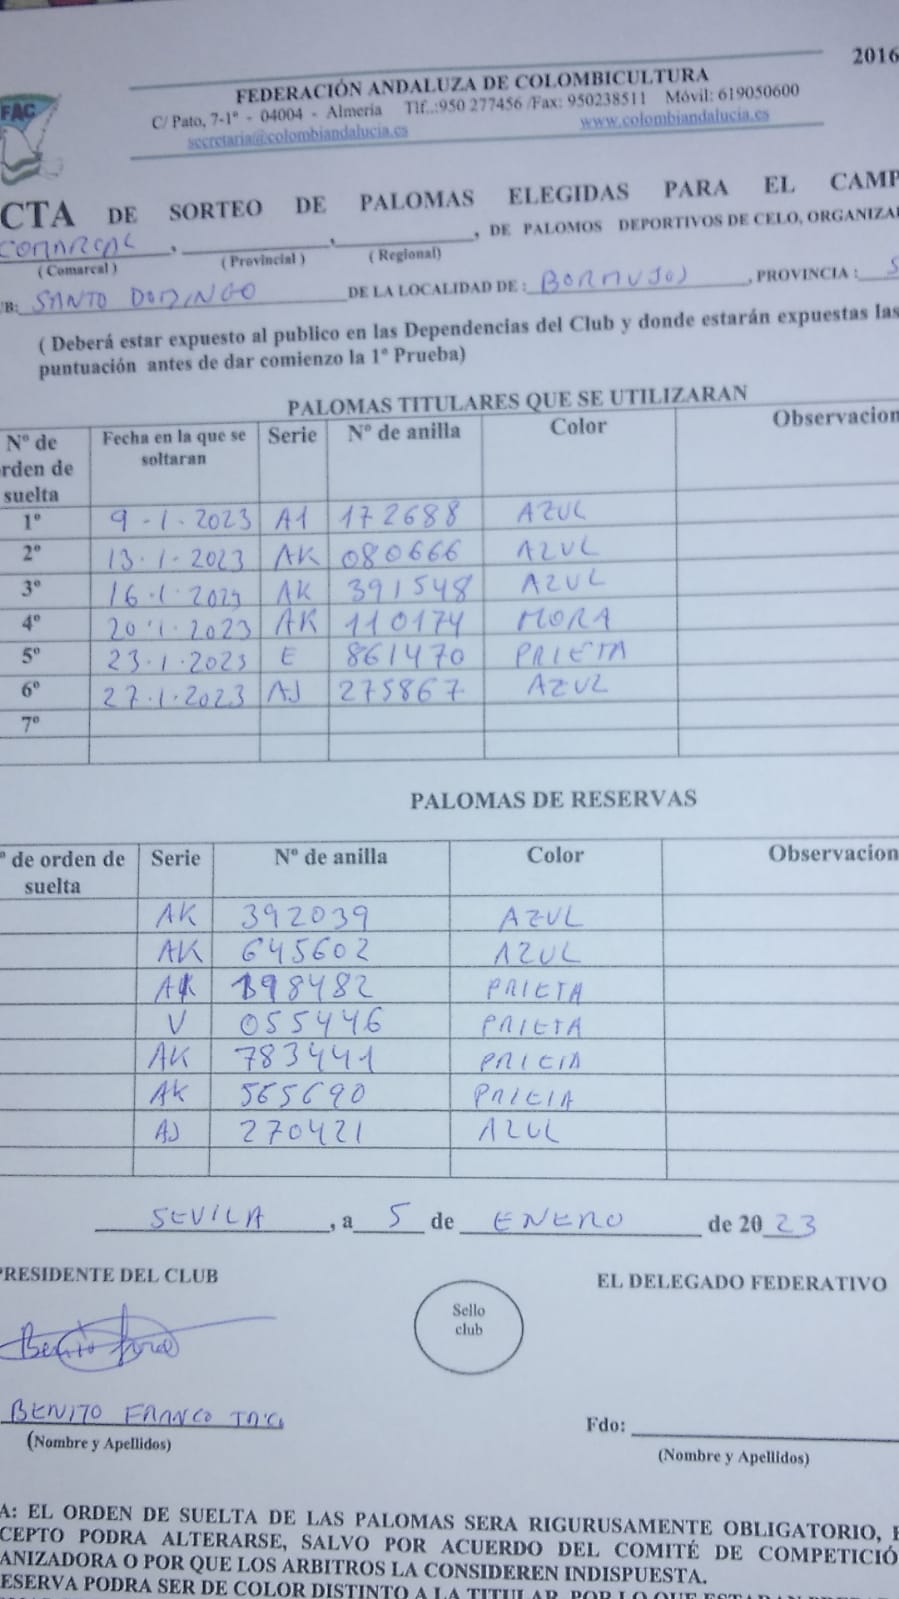 2016
FAC
FEDERACIÓN ANDALUZA DE COLOMBICULTURA
C/ Pato, 7-1º - 04004 - Almería Tlf..:950 277456 /Fax: 950238511 Móvil: 619050600
secretaria@colombiandalucia.es www.colombiandalucia.es
CTA DE SORTEO DE PALOMAS ELEGIDAS PARA EL CAMP
COMARCAL, , , DE PALOMOS DEPORTIVOS DE CELO, ORGANIZA
( Comarcal ) ( Provincial ) ( Regional)
B: SANTO DOMINGO DE LA LOCALIDAD DE : BORMUJOS, PROVINCIA : S
( Deberá estar expuesto al publico en las Dependencias del Club y donde estarán expuestas las
puntuación antes de dar comienzo la 1ª Prueba)
PALOMAS TITULARES QUE SE UTILIZARAN
Nº de orden de suelta Fecha en la que se soltaran Serie Nº de anilla Color Observacion
1º 9-1-2023 A1 172688 AZUL
2º 13-1-2023 AK 080666 AZUL
3º 16-1-2023 AK 391548 AZUL
4º 20-1-2023 AK 110174 MORA
5º 23-1-2023 E 861470 PRIETA
6º 27-1-2023 AJ 275867 AZUL
7º
PALOMAS DE RESERVAS
º de orden de suelta Serie Nº de anilla Color Observacion
AK 392039 AZUL
AK 645602 AZUL
AK 198482 PRIETA
V 055446 PRIETA
AK 783441 PRIETA
AK 565690 PRIETA
AJ 270421 AZUL
SEVILA, a 5 de ENERO de 2023
PRESIDENTE DEL CLUB EL DELEGADO FEDERATIVO
Sello
club
BENITO FRANCO
Fdo:
(Nombre y Apellidos) (Nombre y Apellidos)
A: EL ORDEN DE SUELTA DE LAS PALOMAS SERA RIGURUSAMENTE OBLIGATORIO,
CEPTO PODRA ALTERARSE, SALVO POR ACUERDO DEL COMITÉ DE COMPETICIÓ
ANIZADORA O POR QUE LOS ARBITROS LA CONSIDEREN INDISPUESTA.
ESERVA PODRA SER DE COLOR DISTINTO A LA TITULAR, POR LO QUE